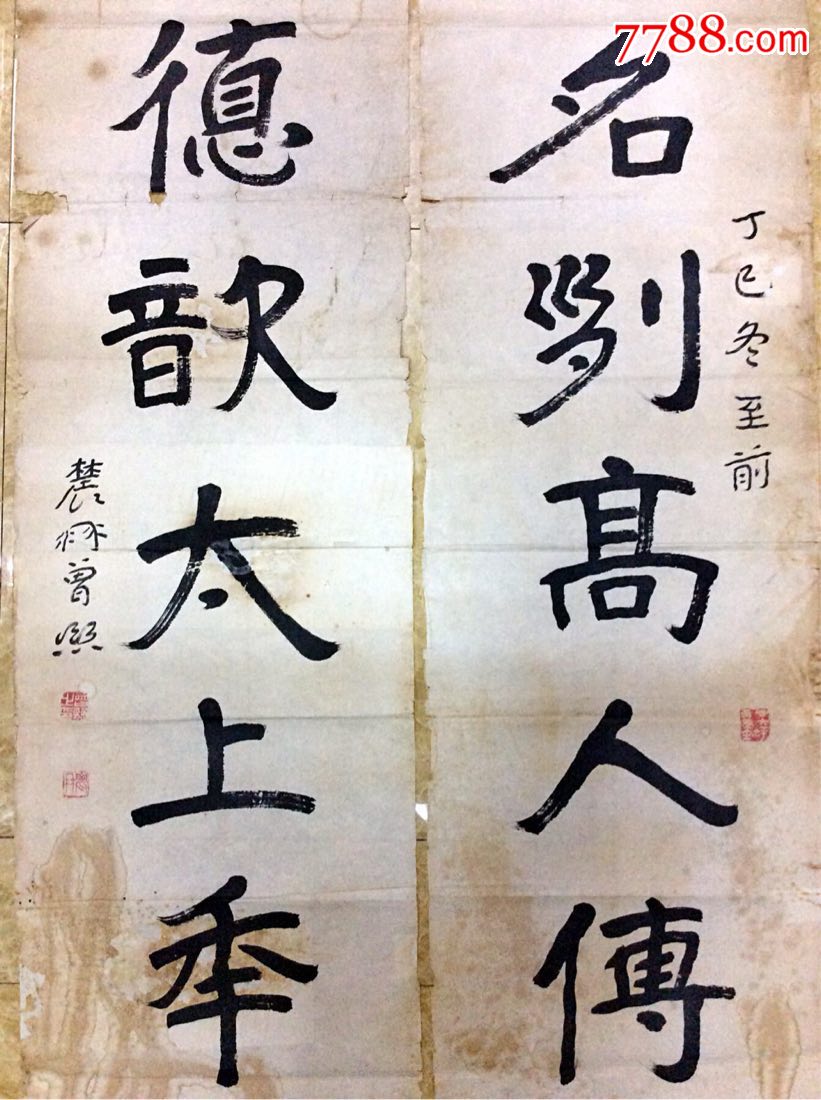 7788.com
名列高人傳
丁巳冬至前
德歆太上年
農髯曾熙